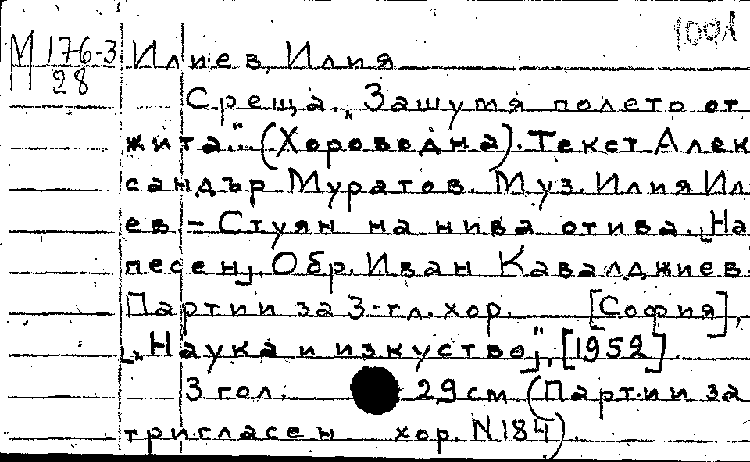 1001
М 176-3 Илиев, Илия
28
Среща. „Зашумя полето от
жита." (Хороводна). Текст Алек
сандър Муратов. Муз. Илия Или
ев. – Стуян на нива отива. [На
песен]. Обр. Иван Кавалджиев.
Партии за 3-гл. хор. [София],
[„Наука и изкуство"], [1952].
3 гол. 29 см (Партии за
тригласен хор. N 184).